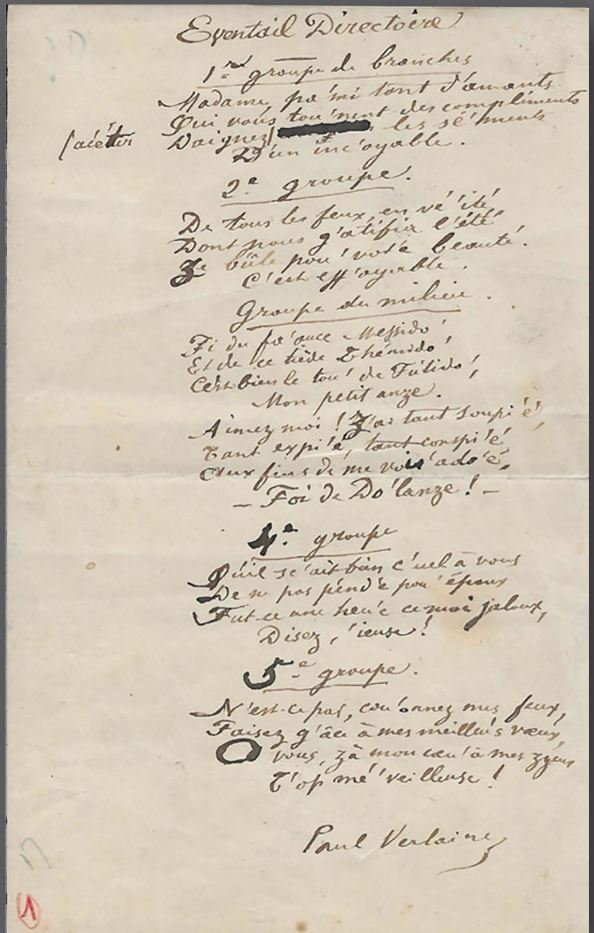 Eventail Directoire
1er groupe de branches
Madame, pa'mi tant d'amants
Qui vous tou'nent des compliments
(acétez Daignez les se'ments
D'un inc'oyable.
2e groupe.
De tous les feux, en vé'ité,
Dont nous g'atifia l'été
Ze b'ûle pou' vot'e beauté.
C'est eff'ayable.
Groupe du milieu.
Fi du fa'ouce Messido',
Et de ce tiède Thémido',
C'est bien le tou' de F'utido',
Mon petit anze.
Aimez moi ! Z'ai tant soupi'é,
Tant expi'é, tant conspi'é
Aux fins de me voi' ado'é,
– Foi de Do'lanze ! –
4e groupe
Qu'il se'ait bien c'uel à vous
De ne pas pend'e pou' époux
Fut-ce une heu'e ce moi jaloux,
Disez, 'ieuse !
5e groupe.
N'est-ce pas, cou'onnez mes feux,
Faisez g'âce à mes meilleu's vœux,
O vous, zà mon cœu' à mes zyeux
T'op mé'veilleuse !
Paul Verlaine
1